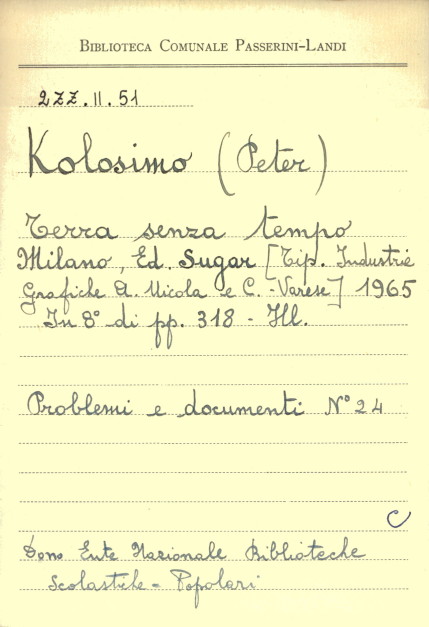 BIBLIOTECA COMUNALE PASSERINI-LANDI
2ZZ.II.51
Kolosimo (Peter)
Terra senza tempo
Milano, Ed. Sugar [Tip. Industrie
Grafiche A. Nicola e C. - Varese] 1965
In 8° di pp. 318 - Ill.
Problemi e documenti N° 24
C
Dono Ente Nazionale Biblioteche
Scolastiche - Popolari